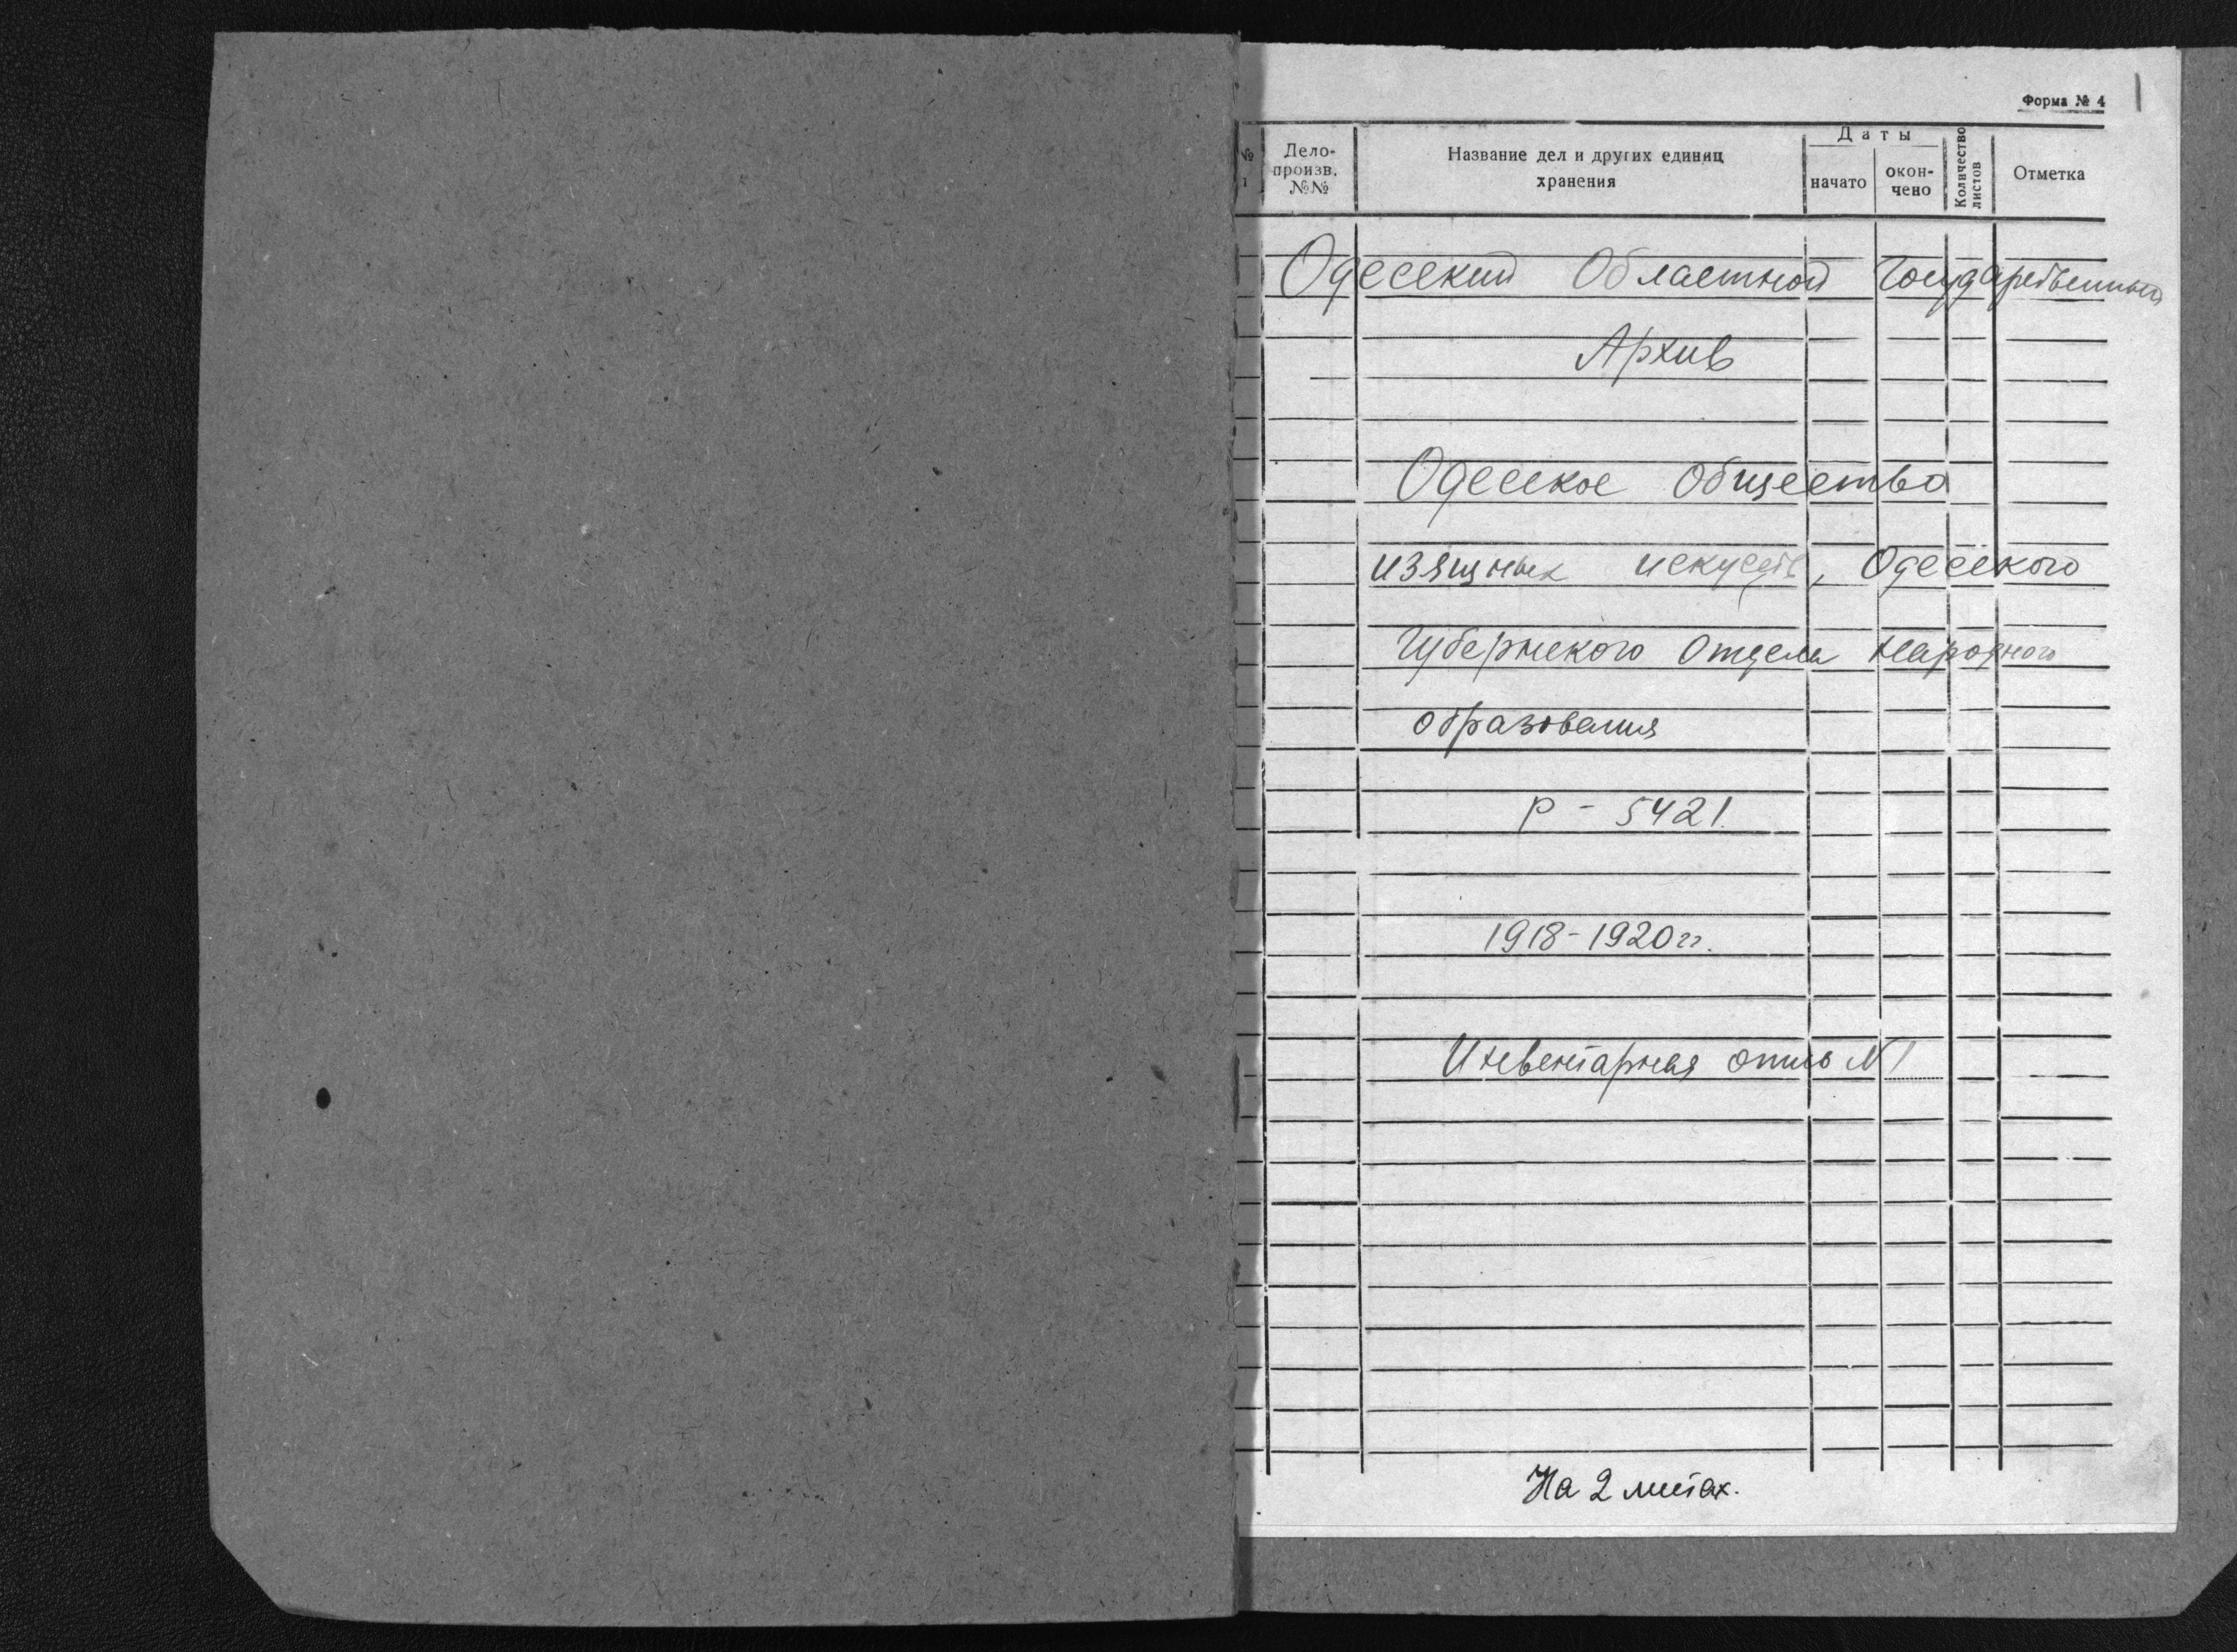 1
Форма № 4
№
Дело-
произв.
№№
Название дел и других единиц
хранения
Даты
начато
окон-
чено
Количество
листов
Отметка
Одесский Областной Государственный
Архив
Одесское Общество
изящных искусств, Одесского
Губернского Отдела Народного
образования
Р - 5421.
1918-1920 гг.
Инвентарная опись № 1
На 2 листах.